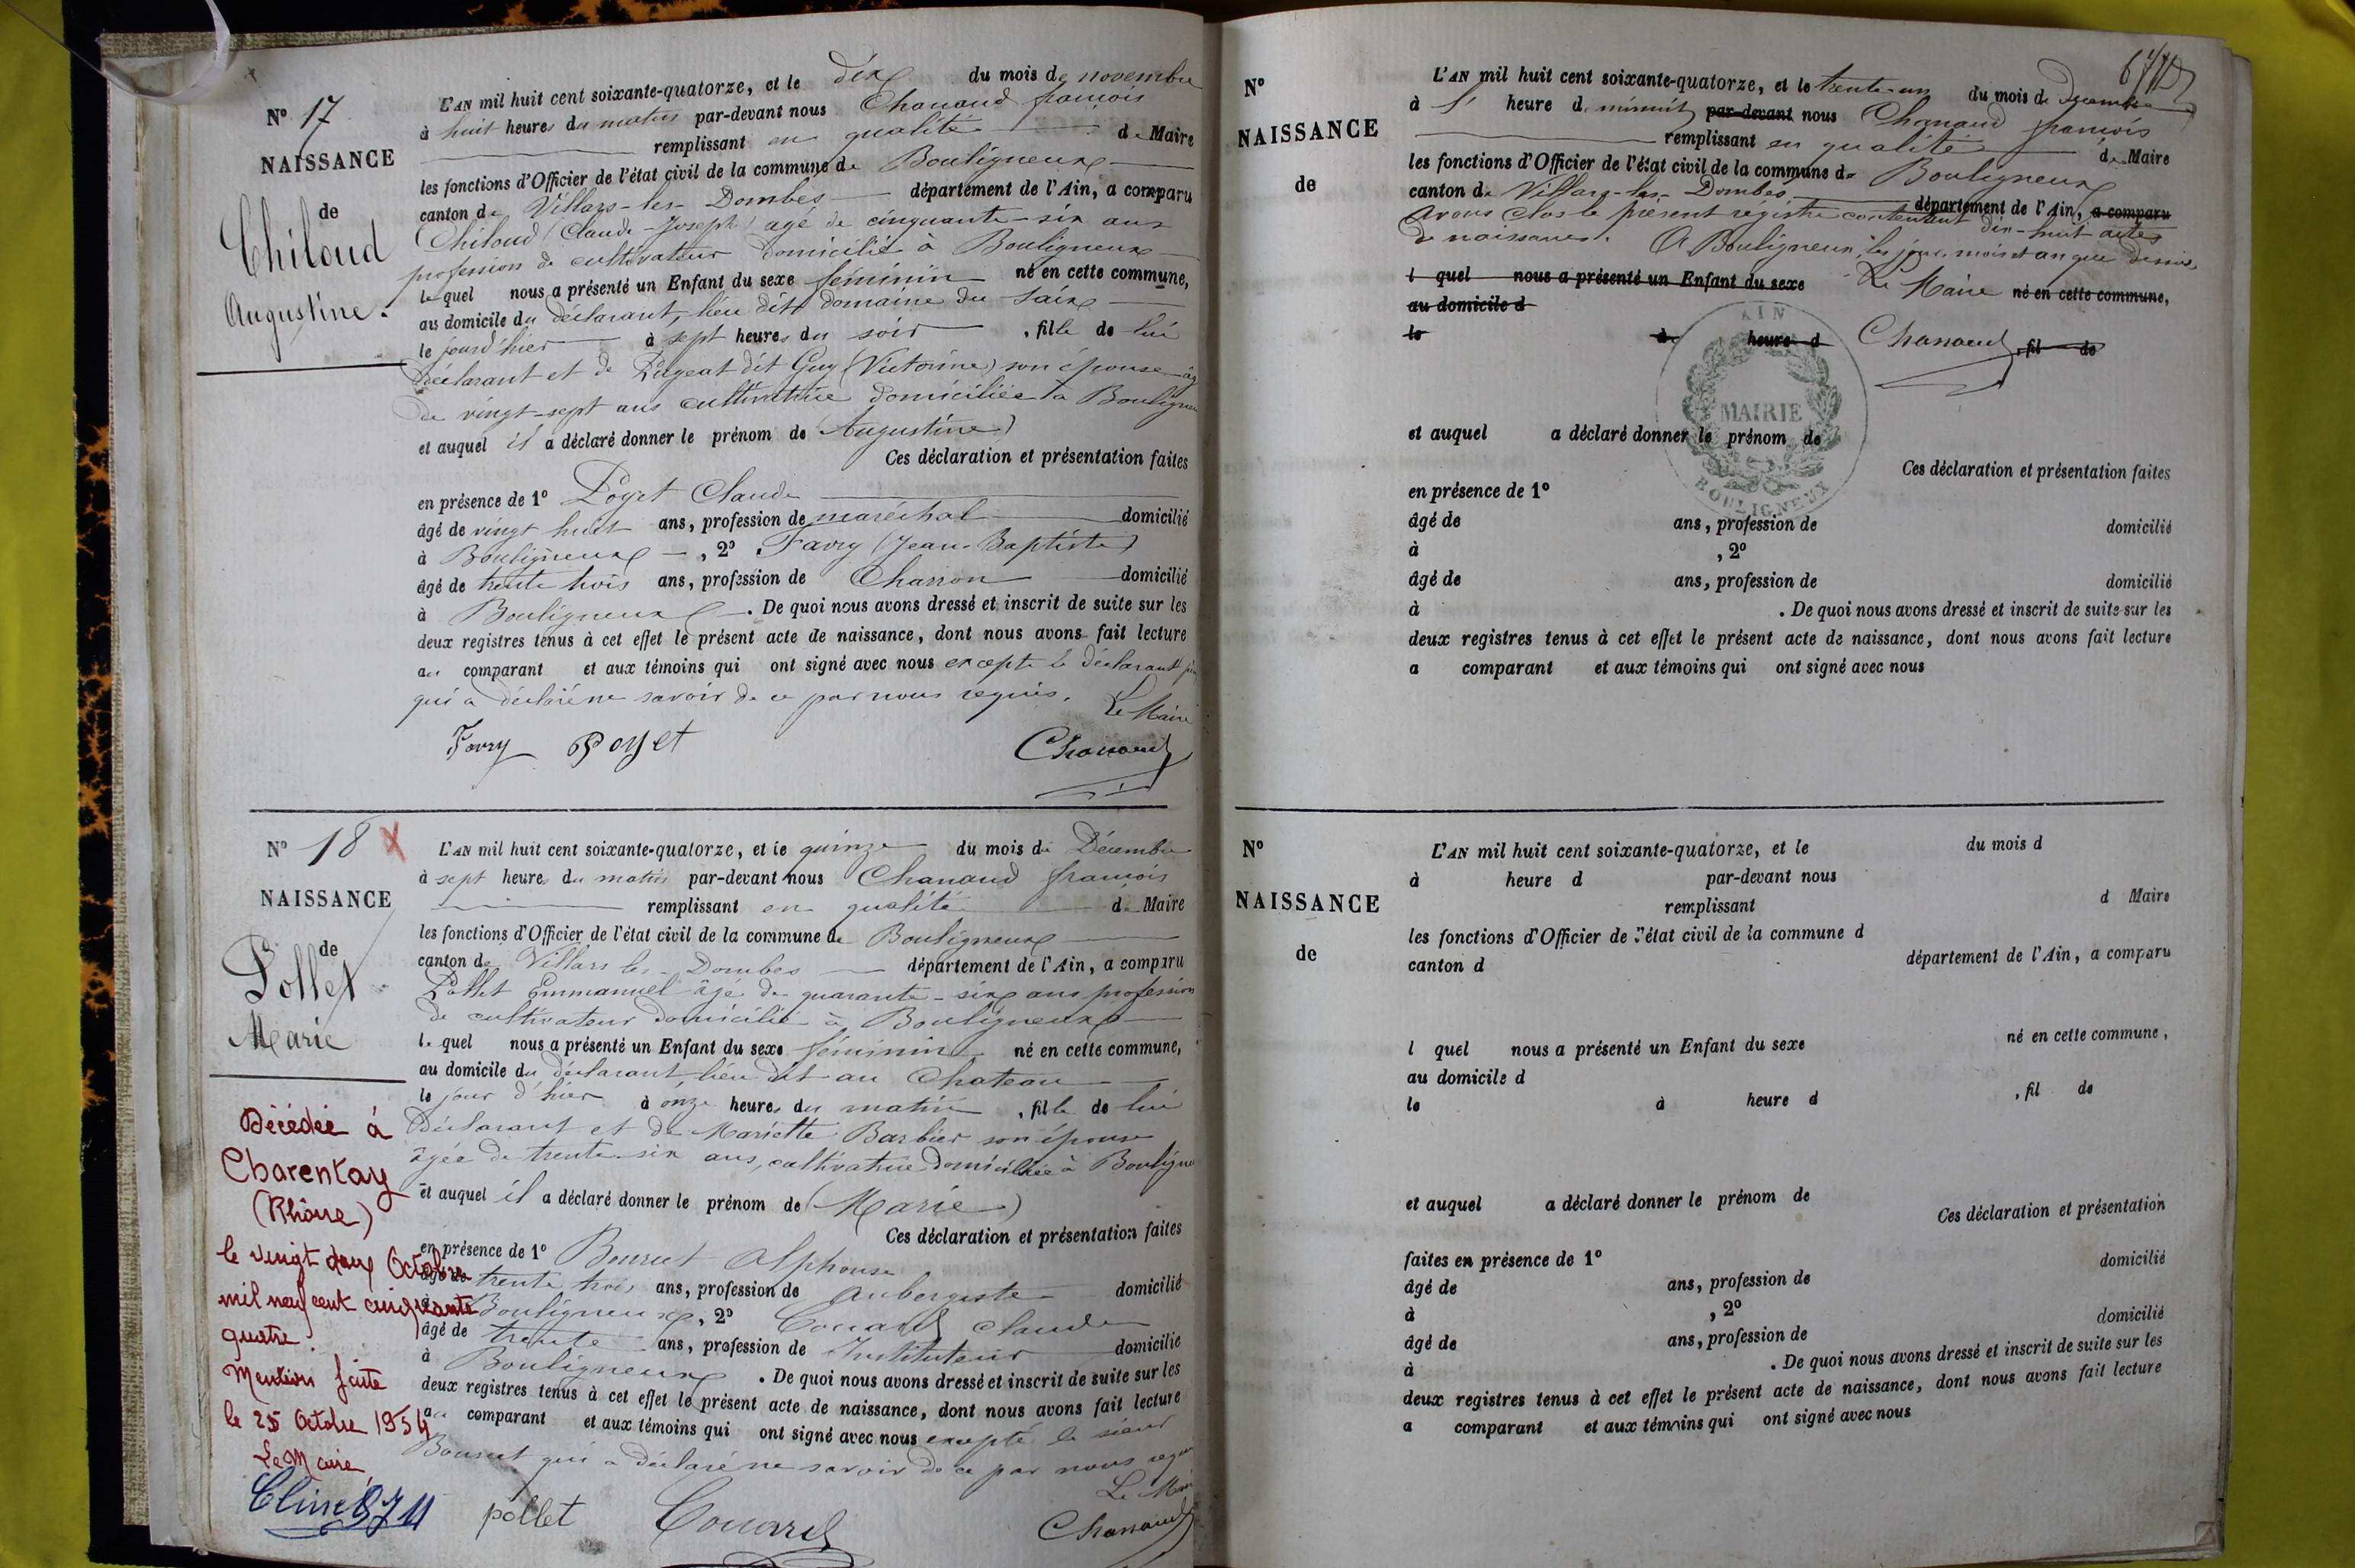 N° 17
NAISSANCE
de
Chiloud
Augustine.
L'AN mil huit cent soixante-quatorze, et le dix du mois de novembre
à huit heures du matin par-devant nous Chanaud françois
remplissant en qualité de Maire
les fonctions d'Officier de l'état civil de la commune de Bouligneux
canton de Villars-les-Dombes département de l'Ain, a comparu
Chiloud (Claude-Joseph) agé de cinquante-six ans
profession de cultivateur domicilié à Bouligneux
lequel nous a présenté un Enfant du sexe féminin né en cette commune,
au domicile du déclarant, lieu dit domaine du
le jourd'hier à sept heures du soir, fille de lui
déclarant et de dit Guy (Victorine) son épouse âg
de vingt-sept ans cultivatrice domiciliée à Bouligneu
et auquel il a déclaré donner le prénom de (Augustine)
Ces déclaration et présentation faites
en présence de 1° Poyet Claude
âgé de vingt huit ans, profession de maréchal domicilié
à Bouligneux, 2° Favry (Jean-Baptiste)
âgé de trente trois ans, profession de Charron domicilié
à Bouligneux. De quoi nous avons dressé et inscrit de suite sur les
deux registres tenus à cet effet le présent acte de naissance, dont nous avons fait lecture
au comparant et aux témoins qui ont signé avec nous excepté le déclarant
qui a déclaré ne savoir de ce par nous requis.
Le Maire
Favry Poyet Chanaud
N° 18 X
NAISSANCE
de
Pollet
Marie
L'AN mil huit cent soixante-quatorze, et le quinze du mois de Décembre
à sept heures du matin par-devant nous Chanaud françois
remplissant en qualité de Maire
les fonctions d'Officier de l'état civil de la commune de Bouligneux
canton de Villars les-Dombes département de l'Ain, a comparu
Pollet Emmanuel âgé de quarante-six ans profession
de cultivateur domicilié à Bouligneux
lequel nous a présenté un Enfant du sexe féminin né en cette commune,
au domicile du déclarant, lieu dit au Chateau
le jour d'hier à onze heures du matin, fille de lui
Déclarant et de Mariette Barbier son épouse
âgée de trente-six ans, cultivatrice domiciliée à Bouligne
et auquel il a déclaré donner le prénom de (Marie)
Ces déclaration et présentation faites
en présence de 1° Bourcet Alphonse
âgé de trente trois ans, profession de aubergiste domicilié
à Bouligneux, 2° Couard Claude
âgé de trente ans, profession de Instituteur domicilié
à Bouligneux. De quoi nous avons dressé et inscrit de suite sur les
deux registres tenus à cet effet le présent acte de naissance, dont nous avons fait lecture
au comparant et aux témoins qui ont signé avec nous excepté le sieur
Bourcet qui a déclaré ne savoir de ce par nous requi
Le Mair
pollet Couard Chanaud
Décédée à
Charentay
(Rhône)
le vingt deux Octobre
mil neuf cent cinquante
quatre.
Mention faite
le 25 Octobre 1954
Le Maire,
N°
NAISSANCE
de
L'AN mil huit cent soixante-quatorze, et le trente-un du mois de Décembre
à heure de minuit par-devant nous Chanaud françois
remplissant en qualité de Maire
les fonctions d'Officier de l'état civil de la commune de Bouligneux
canton de Villars-les-Dombes département de l'Ain, a comparu
avons clos le présent registre contenant dix-huit actes
de naissances. A Bouligneux, les jour, mois et an que dessus.
l quel nous a présenté un Enfant du sexe Le Maire né en cette commune,
au domicile d
le à heure d Chanaud, fil de
AIN
MAIRIE
BOULIGNEUX
et auquel a déclaré donner le prénom de
Ces déclaration et présentation faites
en présence de 1°
âgé de ans, profession de domicilié
à , 2°
âgé de ans, profession de domicilié
à . De quoi nous avons dressé et inscrit de suite sur les
deux registres tenus à cet effet le présent acte de naissance, dont nous avons fait lecture
a comparant et aux témoins qui ont signé avec nous
N°
NAISSANCE
de
L'AN mil huit cent soixante-quatorze, et le du mois d
à heure d par-devant nous
remplissant d Maire
les fonctions d'Officier de l'état civil de la commune d
canton d département de l'Ain, a comparu
l quel nous a présenté un Enfant du sexe né en cette commune,
au domicile d
le à heure d , fil de
et auquel a déclaré donner le prénom de
Ces déclaration et présentation
faites en présence de 1° domicilié
âgé de ans, profession de
à , 2° domicilié
âgé de ans, profession de
à . De quoi nous avons dressé et inscrit de suite sur les
deux registres tenus à cet effet le présent acte de naissance, dont nous avons fait lecture
a comparant et aux témoins qui ont signé avec nous